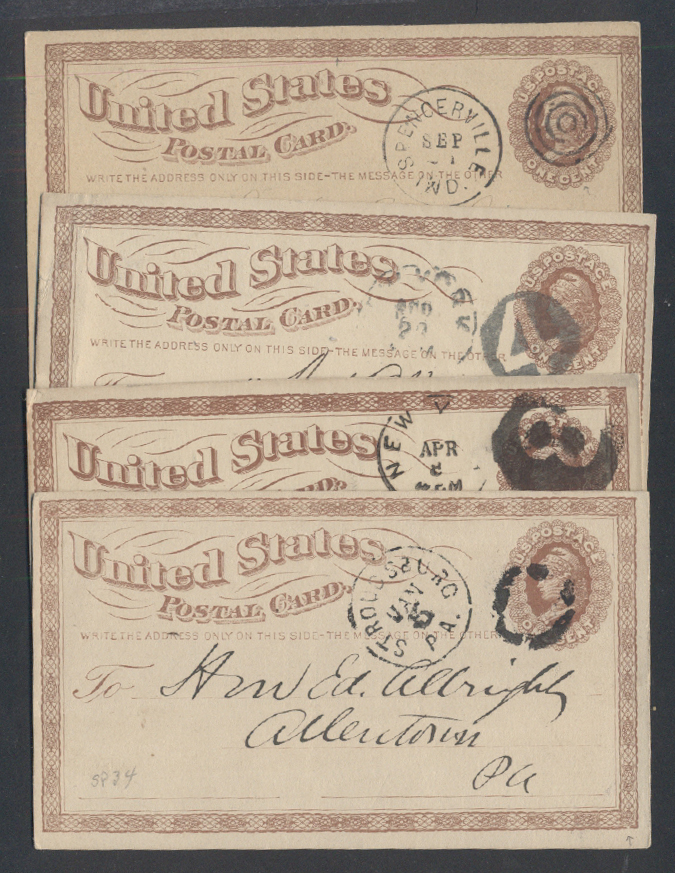 United States
POSTAL CARD.
WRITE THE ADDRESS ONLY ON THIS SIDE-THE MESSAGE ON THE OTHER
SPENCERVILLE
SEP
IND.
U.S. POSTAGE
ONE CENT
United States
POSTAL CARD.
WRITE THE ADDRESS ONLY ON THIS SIDE-THE MESSAGE ON THE OTHER
U.S. POSTAGE
ONE CENT
To
United States
NEW
APR
United States
POSTAL CARD.
WRITE THE ADDRESS ONLY ON THIS SIDE-THE MESSAGE ON THE OTHER
STROUDSBURG
JAN
PA.
U.S. POSTAGE
ONE CENT
To Hon Ed. Albright
Allentown
Pa
SP34